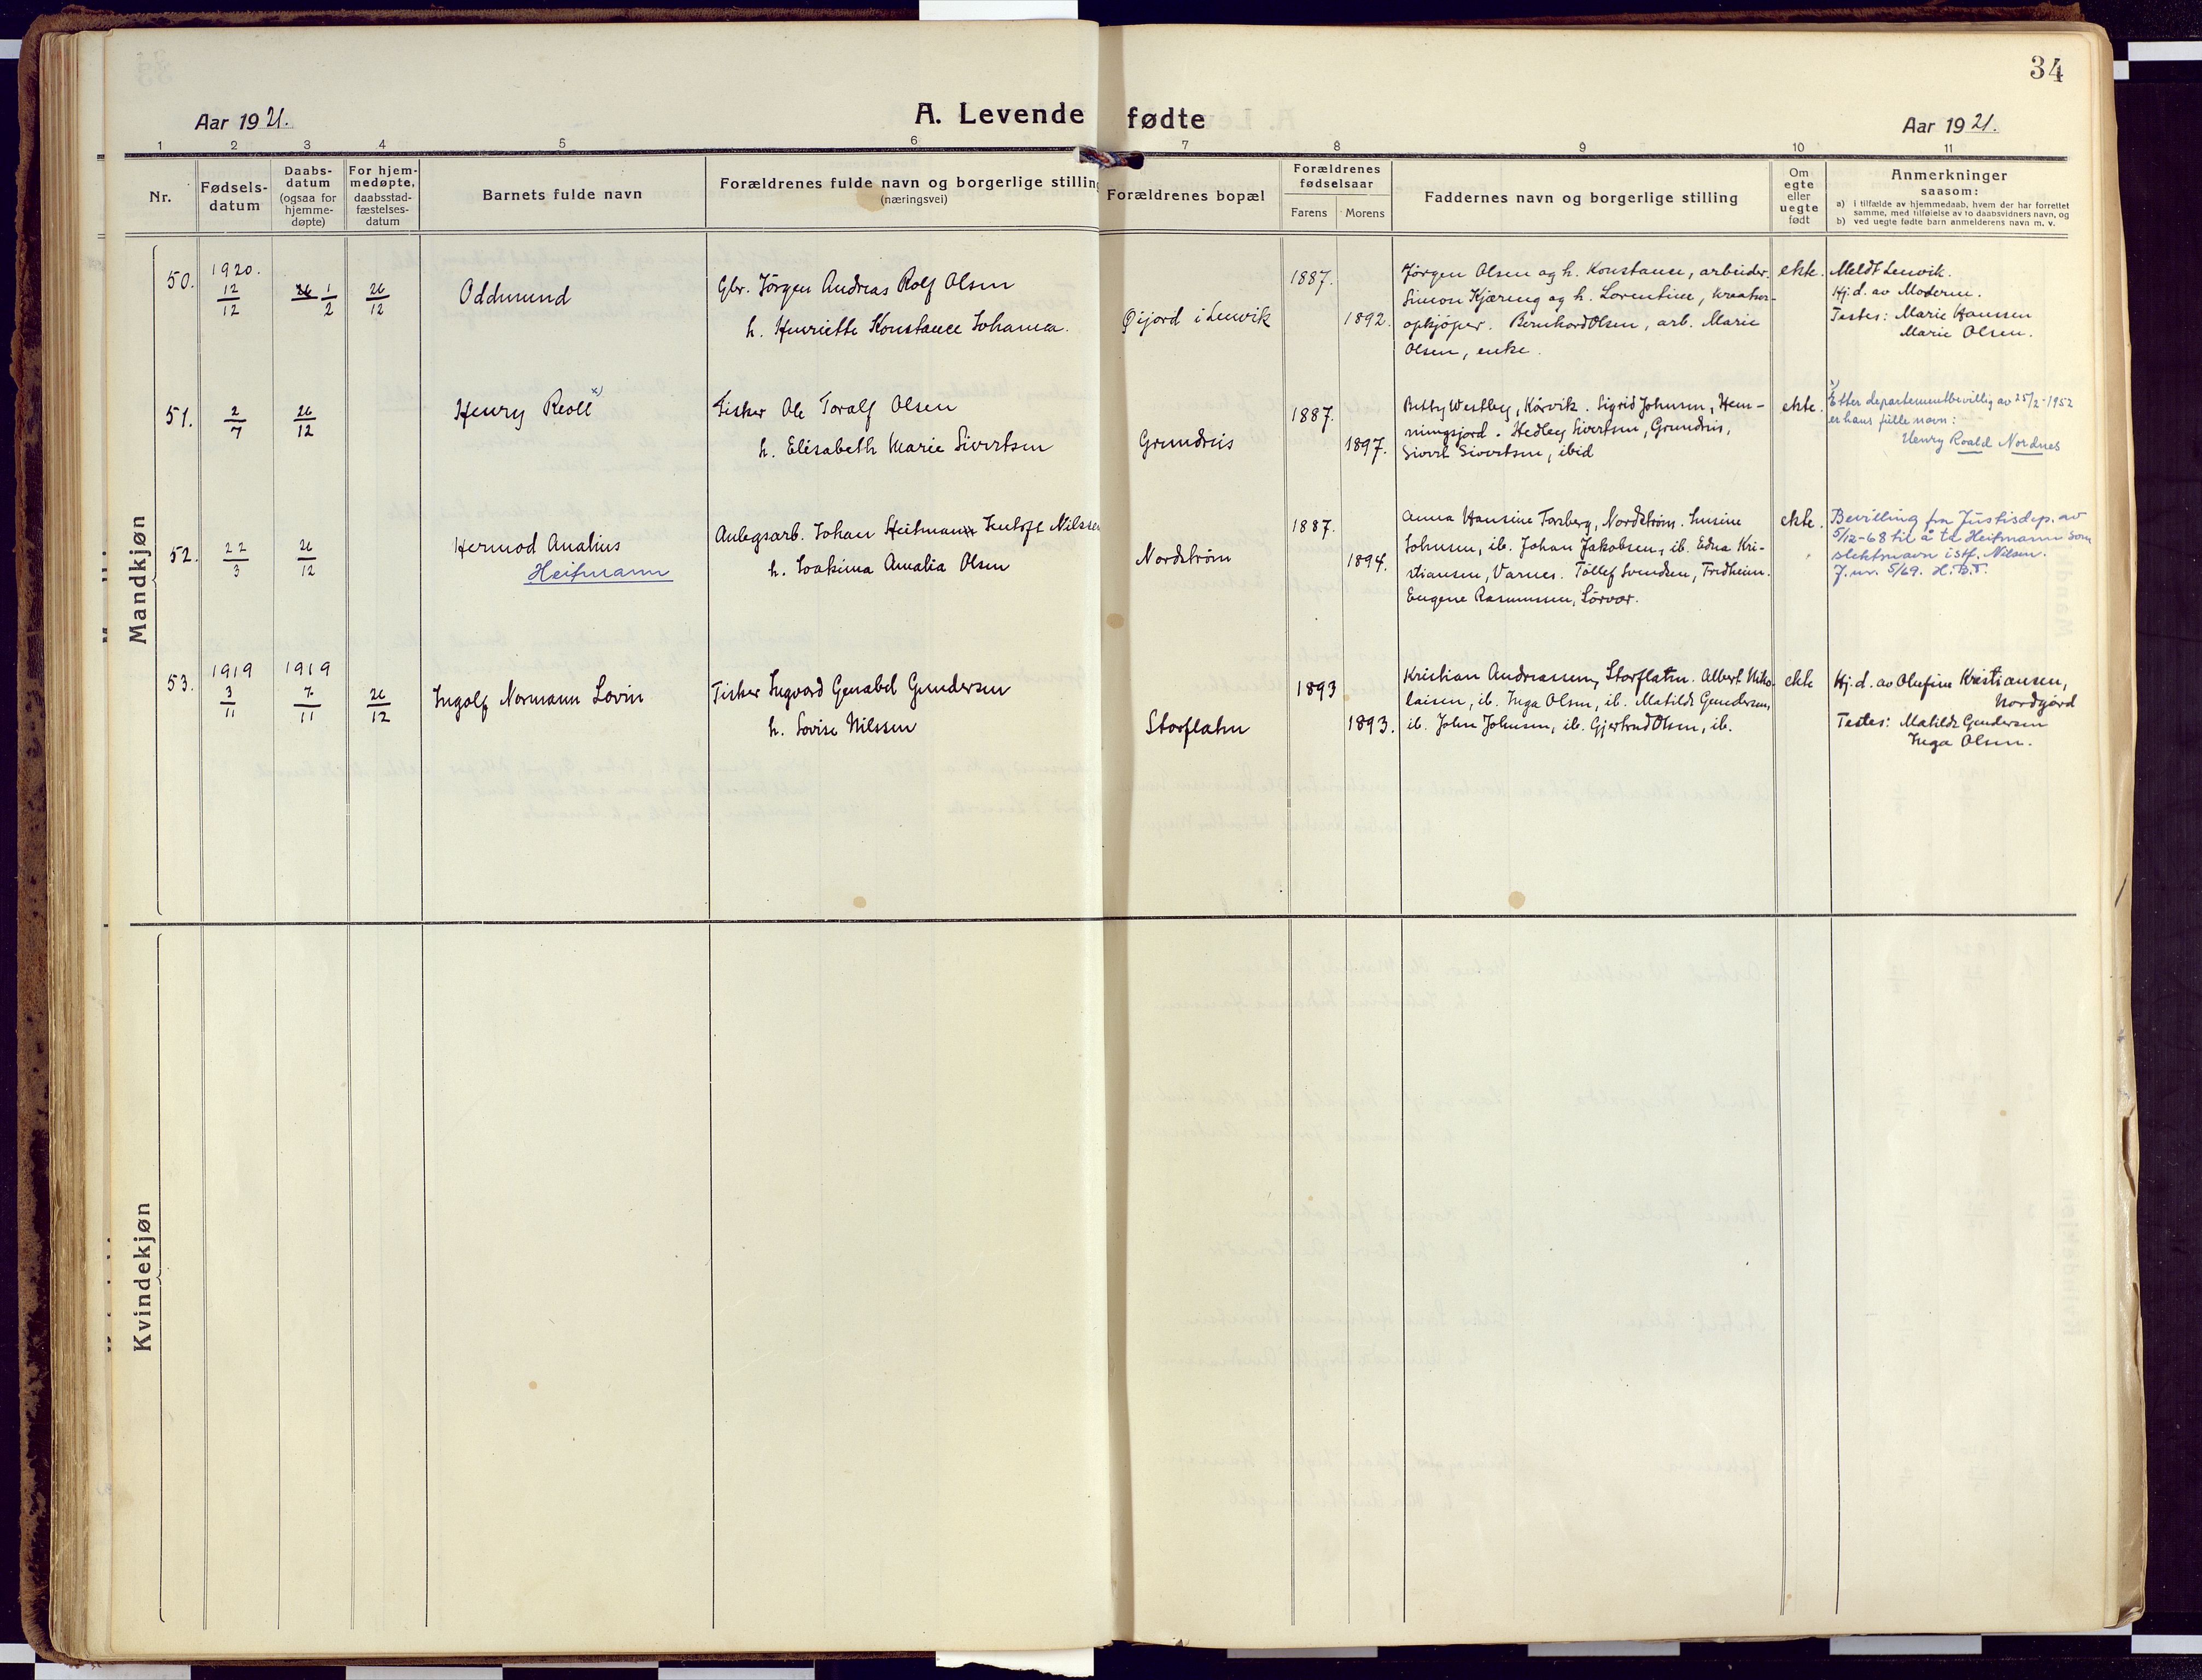 34
Aar 1921.
A. Levende fødte
Aar 1921.
1 2 3 4 5 6 7 8 9 10 11
Nr.
Fødsels-
datum
Daabs-
datum
(ogsaa for
hjemme-
døpte)
For hjem-
medøpte,
daabsstad-
fæstelses-
datum
Barnets fulde navn
Forældrenes fulde navn og borgerlige stilling
(næringsvei)
Forældrenes bopæl
Forældrenes
fødselsaar
Farens Morens
Faddernes navn og borgerlige stilling
Om
egte
eller
uegte
født
Anmerkninger
saasom:
a) i tilfælde av hjemmedaab, hvem der har forrettet
samme, med tilføielse av to daabsvidners navn, og
b) ved uegte fødte barn anmelderens navn m. v.
Mandkjøn
50.
1920.
12/12
26 1/2
26/12
Oddmund
Gbr. Jörgen Andreas Rolf Olsen
h. Henriette Konstance Johansen.
Øijord i Lenvik
1887.
1892.
Jörgen Olsen og h. Konstanse, arbeider.
Simon Kjæreng og h. Lorentine, kreatur-
opkjöper. Bernhard Olsen, arb. Marie
Olsen, enke.
ekte.
Meldt Lenvik.
Hj.d. av Moderen.
Testes: Marie Hanssen
Marie Olsen.
51.
2/7
26/12
Henry Reoll x)
Fisker Ole Toralf Olsen
h. Elisabeth Marie Sivertsen
Grundnes
1887.
1897.
Betty Westberg, Kårvik. Sigrid Johnsen, Hem-
ningsjord. Hedley Sivertsen, Grundnes,
Sivert Sivertsen, ibid
ekte.
x) Etter departementbevillig av 25/2-1952
er hans fulle navn:
Henry Roald Nordnes
52.
22/3
26/12
Hermod Analius
Heitmann
Anlegsarb. Johan Heitmann Jentoft Nilssen
h. Joakima Amalia Olsen
Nordström
1887.
1894.
Anna Hansine Forsberg, Nordström.
Johnsen, ib. Johan Jakobsen, ib. Edna Kri-
stiansen, Varnes. Tollef Svendsen, Fredheim.
Eugene Rasmussen, Lörvær.
ekte.
Bevilling fra Justisdep. av
5/12-68 til å ta Heitmann som
slektsnavn istf. Nilsen.
J.nr. 5/69. H.B.T.
53.
1919
3/11
1919
7/11
26/12
Ingolf Normann Lovin
Fisker Ingvard Genabel Gundersen
h. Lovise Nilssen
Storflaten
1893
1893.
Kristian Andreassen, Storflaten. Albert Niko-
laisen, ib. Inga Olsen, ib. Matilde Gundersen,
ib. John Johnsen, ib. Gjertrud Olsen, ib.
ekte
Hj.d. av Olufine Kristiansen,
Nordgård
Testes: Matilde Gundersen
Inga Olsen.
Kvindekjøn